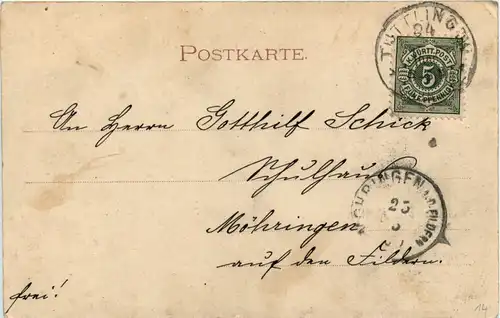 TUTTLINGEN
24
POSTKARTE.
K. WÜRTT. POST
5
FÜNF PFENNIG
An Herrn Gotthilf Schick
Schulhaus
MÖHRINGEN A.D. FILDERN
25
Möhringen
auf den Fildern.
frei!
14